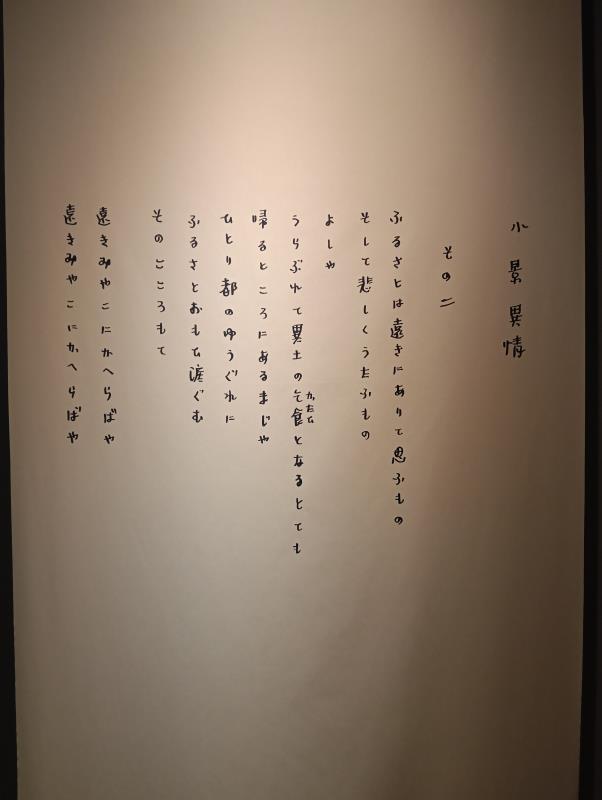 小景異情
その二
ふるさとは遠きにありて思ふもの
そして悲しくうたふもの
よしや
うらぶれて異土の乞食となるとても
かたひ
帰るところにあるまじや
ひとり都のゆうぐれに
ふるさとおもひ涙ぐむ
そのこころもて
遠きみやこにかへらばや
遠きみやこにかへらばや